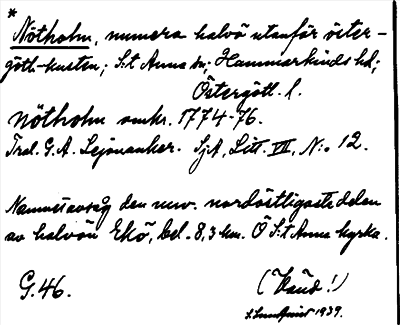 *
Nötholm, numera halvö utanför öster-
götl.-kusten; S:t Anna sn; Hammarkinds hd;
Östergötl. l.
Nötholm omkr. 1774-76.
Trol. G. A. Lejonanker. SjA, Litt. VII, N:o 12.
Namnet avsåg den nuv. nordöstligaste delen
av halvön Ekö, bel. 8,3 km. Ö S:t Anna kyrka.
G. 46.
(Känd!)
1939.